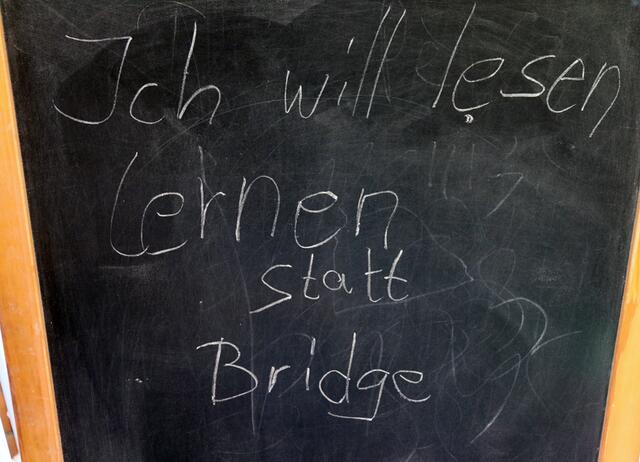 Ich will lesen
lernen
statt
Bridge